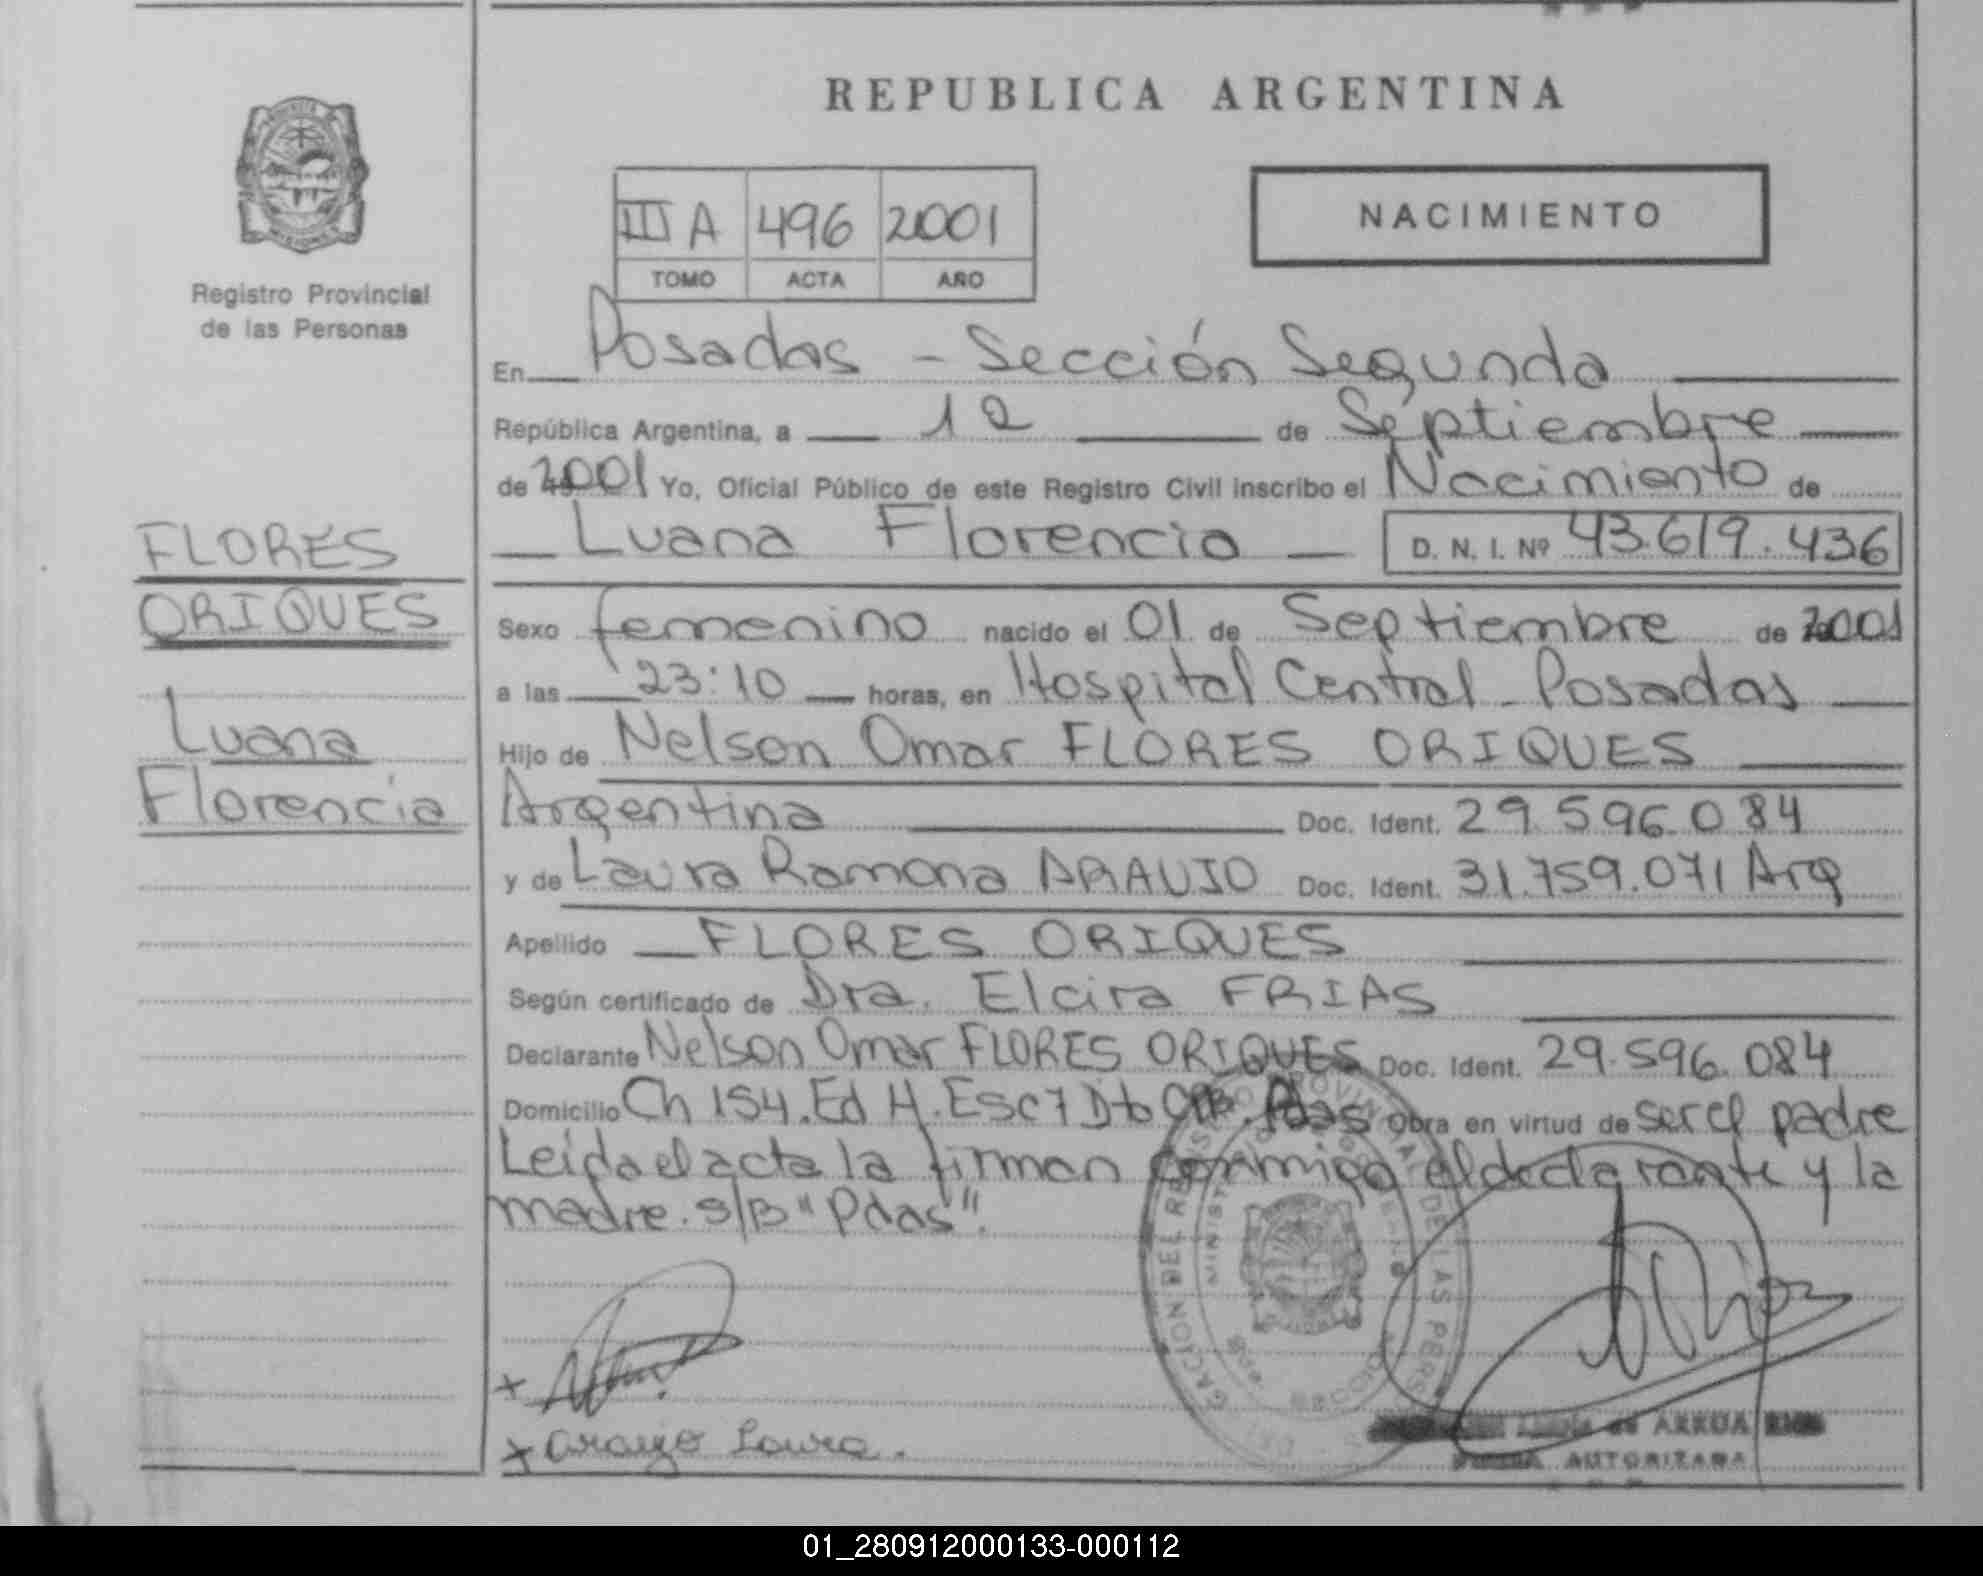 REPUBLICA ARGENTINA
Registro Provincial
de las Personas
III A 496 2001
TOMO ACTA AÑO
NACIMIENTO
En Posadas - Sección Segunda
República Argentina, a 12 de Septiembre
de 2001 Yo, Oficial Público de este Registro Civil inscribo el Nacimiento de
Luana Florencia D. N. I. Nº 43.619.436
FLORES
ORIQUES
Luana
Florencia
Sexo femenino nacido el 01 de Septiembre de 2001
a las 23:10 horas, en Hospital Central - Posadas
Hijo de Nelson Omar FLORES ORIQUES
Argentina Doc. Ident. 29.596.084
y de Laura Ramona ARAUJO Doc. Ident. 31.759.071 Arg
Apellido FLORES ORIQUES
Según certificado de Dra. Elcira FRIAS
Declarante Nelson Omar FLORES ORIQUES Doc. Ident. 29.596.084
Domicilio Ch 154. Ed H. Esc 7 Dto Pdas Obra en virtud de ser el padre
Leida el acta la firman conmigo el declarante y la
madre. S/B "Pdas".
Araujo Laura.
de ARRUA
AUTORIZADA
01_280912000133-000112